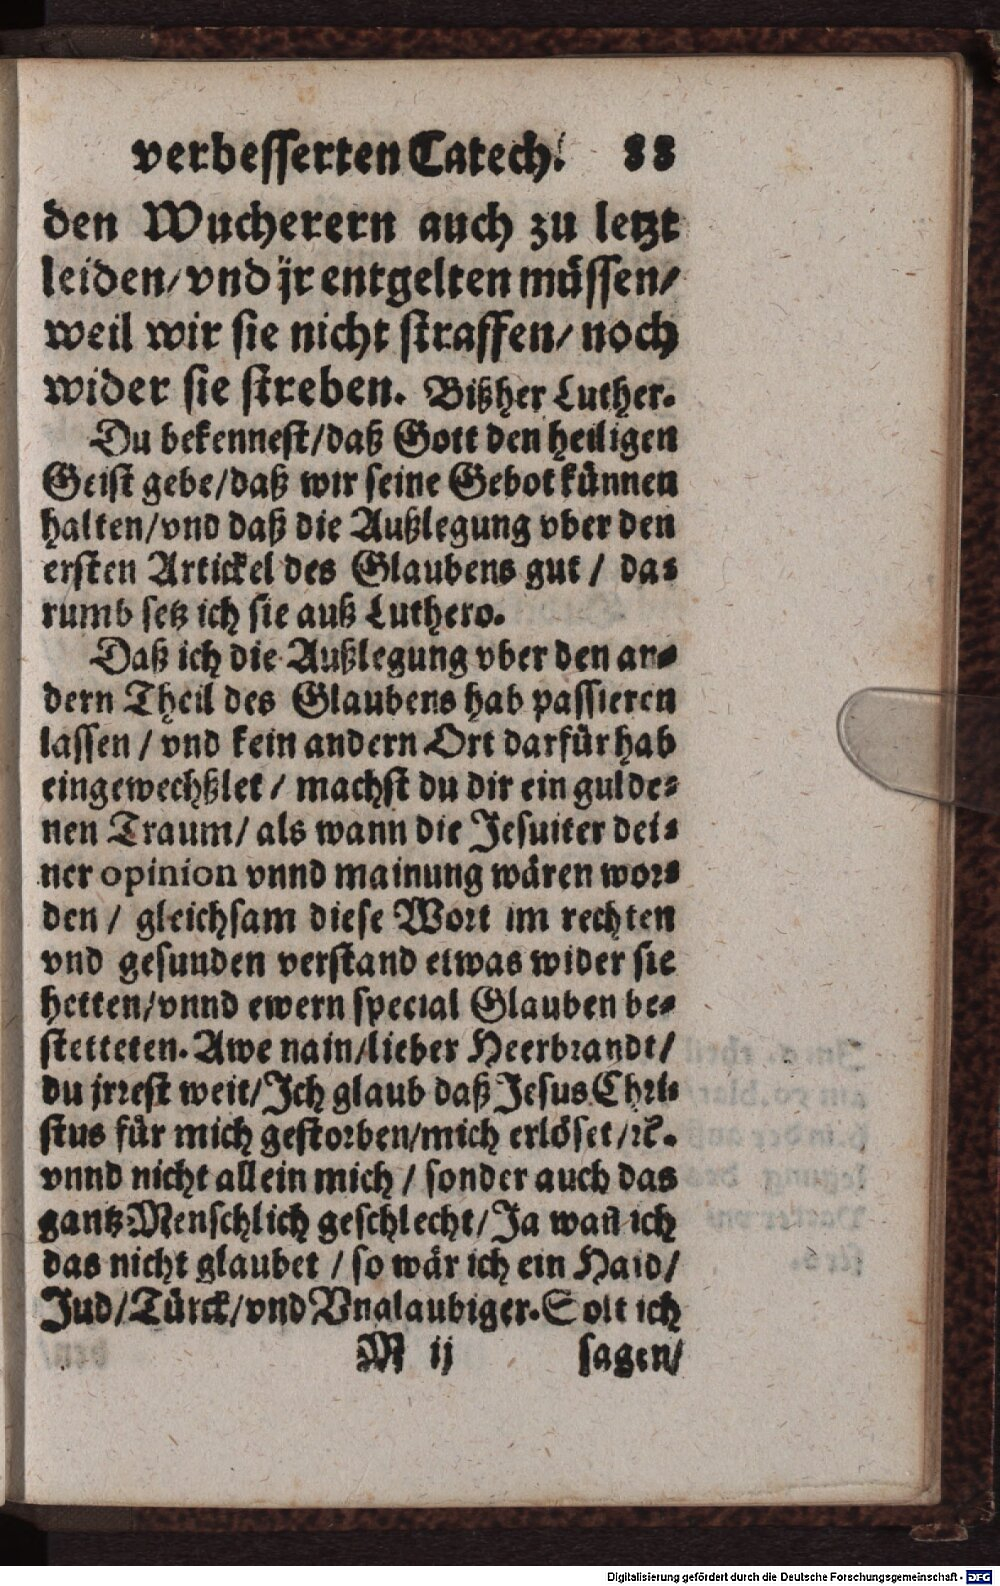 verbesserten Catech. 88
den Wucherern auch zu letzt
leiden/ vnd jr entgelten müssen/
weil wir sie nicht straffen/ noch
wider sie streben. Bißher Luther.
Du bekennest/daß Gott den heiligen
Geist gebe/daß wir seine Gebot künnen
halten/vnd daß die Außlegung vber den
ersten Artickel des Glaubens gut / da-
rumb setz ich sie auß Luthero.
Daß ich die Außlegung vber den an-
dern Theil des Glaubens hab passieren
lassen / vnd kein andern Ort darfür hab
eingewechßlet / machst du dir ein gulde-
nen Traum/ als wann die Jesuiter dei-
ner opinion vnnd mainung wären wor-
den / gleichsam diese Wort im rechten
vnd gesunden verstand etwas wider sie
hetten/vnnd ewern special Glauben be-
stetteten. Awe nain/lieber Heerbrandt/
du jrrest weit/Ich glaub daß Jesus Chri-
stus für mich gestorben/mich erlöset/ꝛc.
vnnd nicht allein mich / sonder auch das
gantz Menschlich geschlecht/Ja wañ ich
das nicht glaubet / so wär ich ein Haid/
Jud/Türck/vnd Vnglaubiger. Solt ich
M ij sagen/
Digitalisierung gefördert durch die Deutsche Forschungsgemeinschaft - DFG